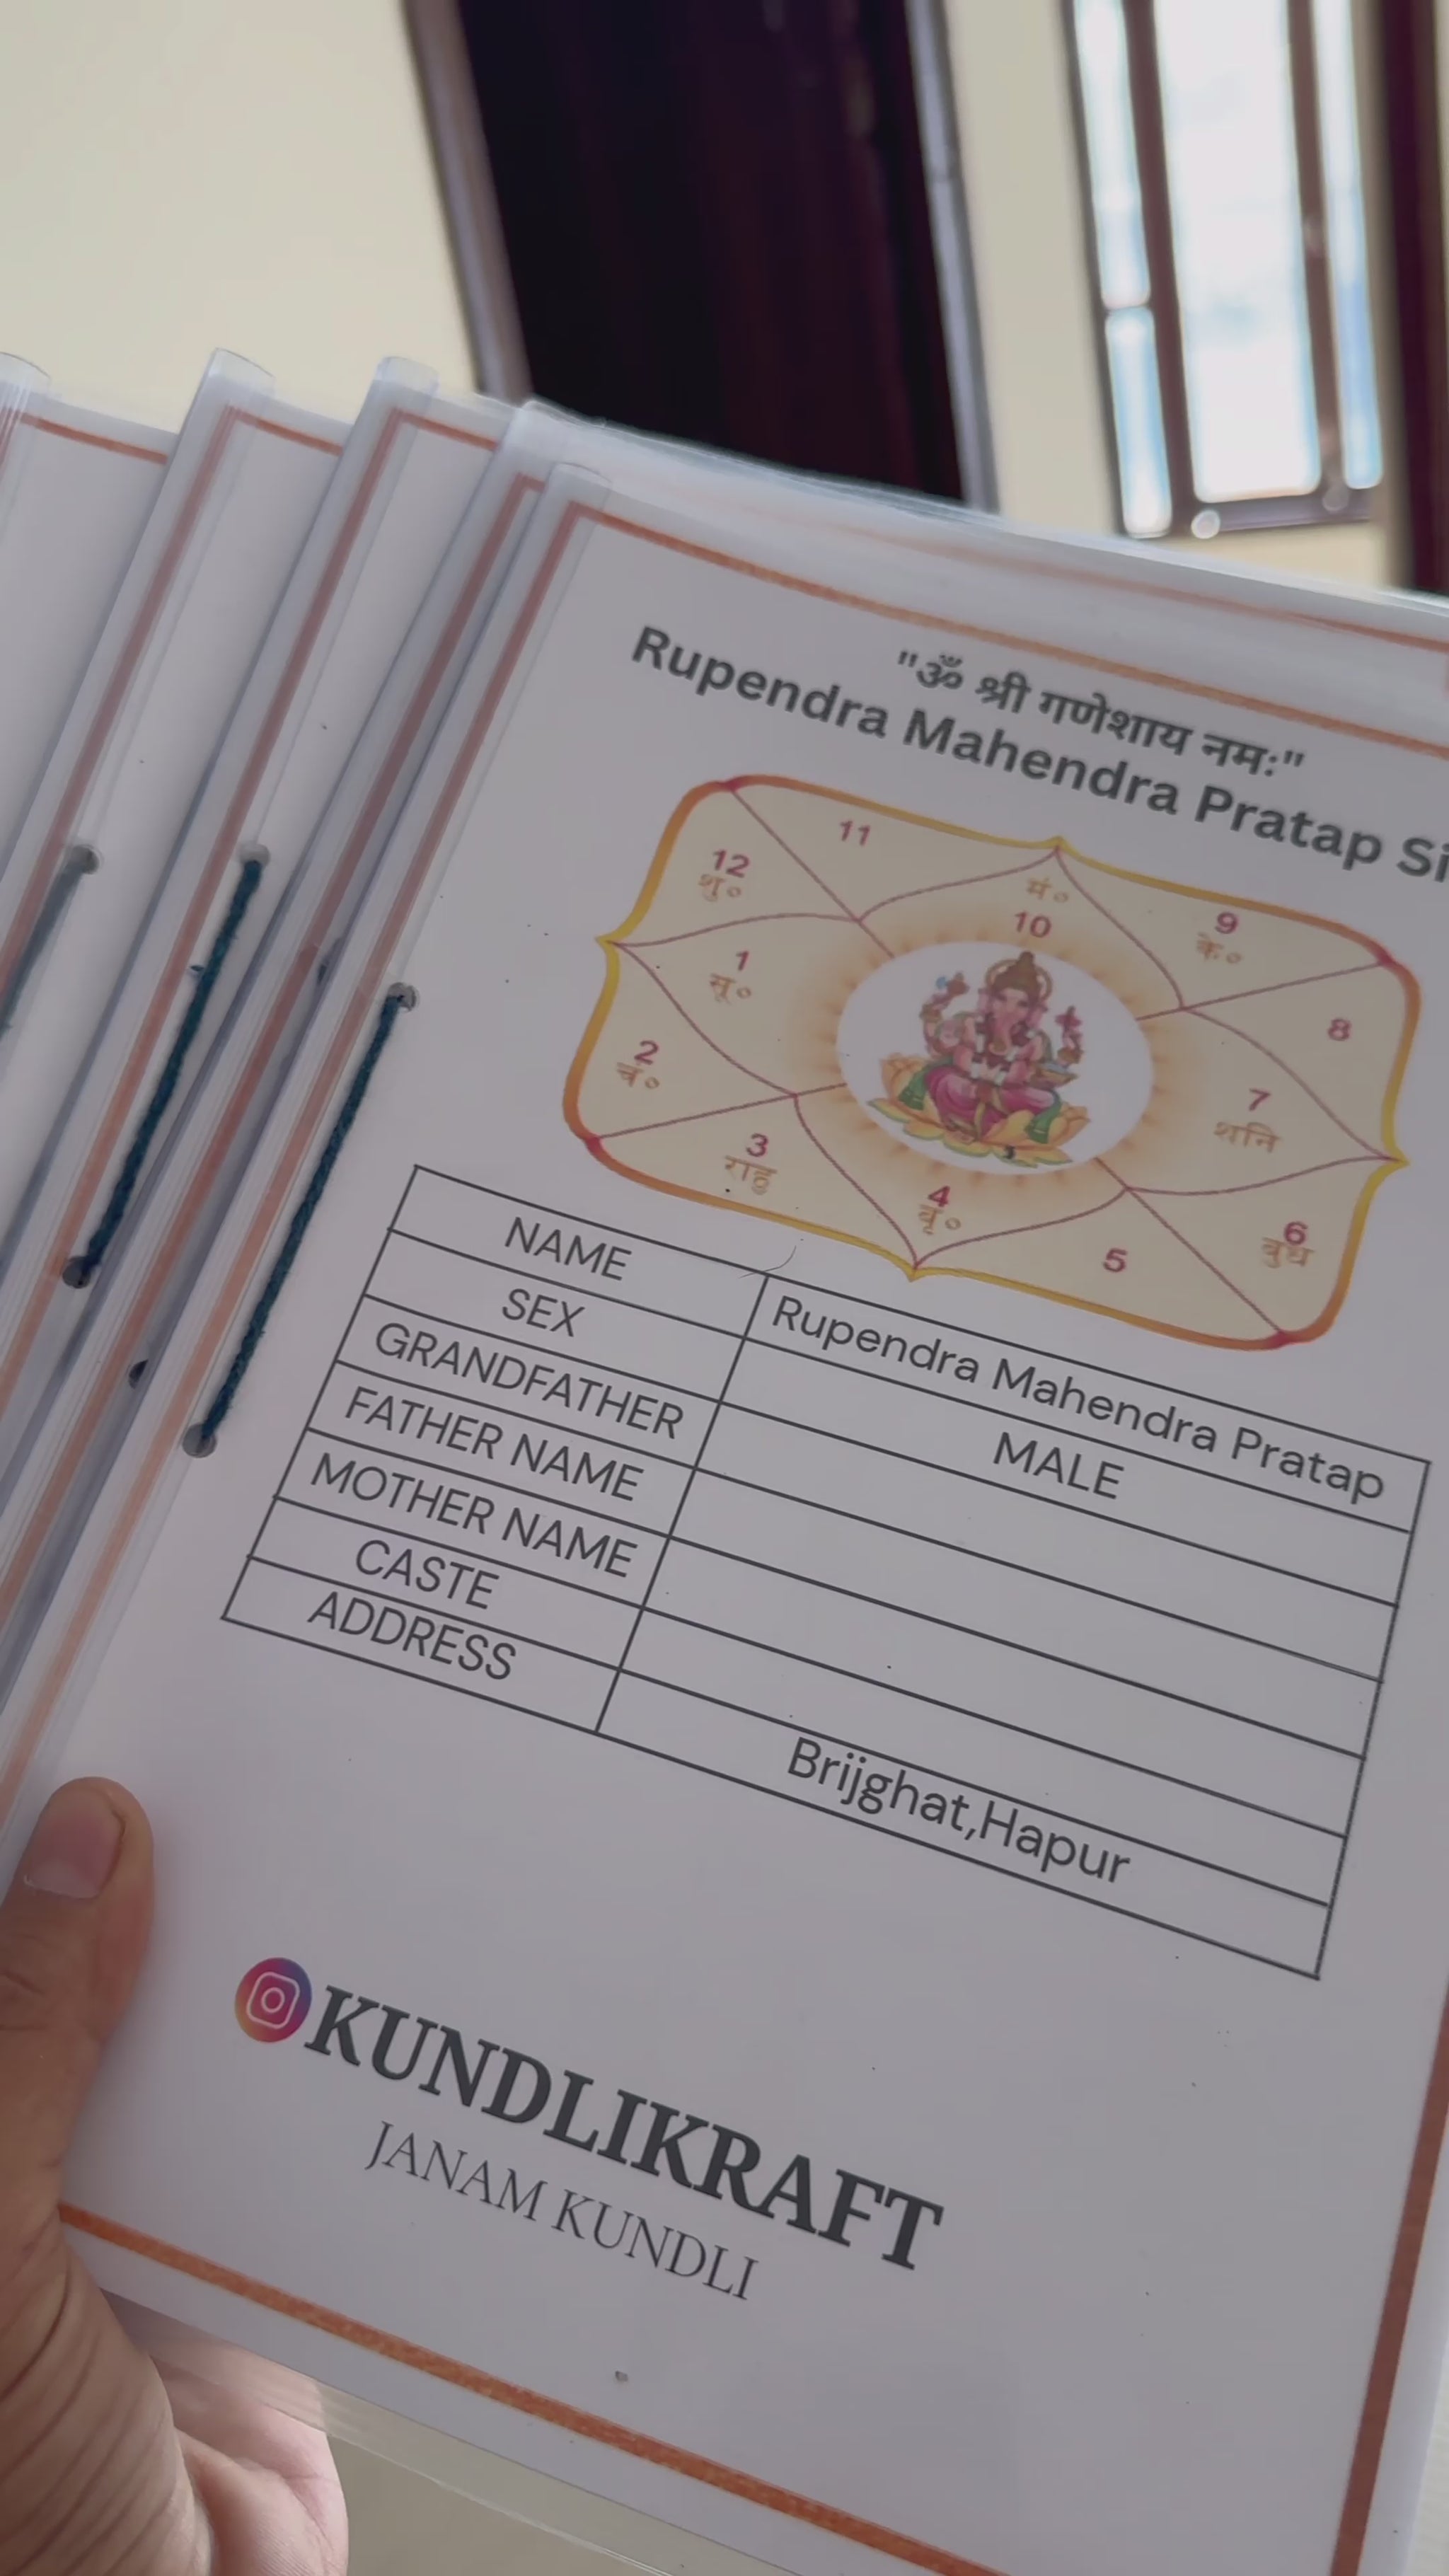 "ॐ श्री गणेशाय नमः"
Rupendra Mahendra Pratap
11
12
शु०
मं०
10
9
के०
1
सू०
8
2
चं०
7
शनि
3
राहु
4
वृ०
5
6
बुध
NAME Rupendra Mahendra Pratap
SEX MALE
GRANDFATHER
FATHER NAME
MOTHER NAME
CASTE
ADDRESS Brijghat,Hapur
KUNDLIKRAFT
JANAM KUNDLI